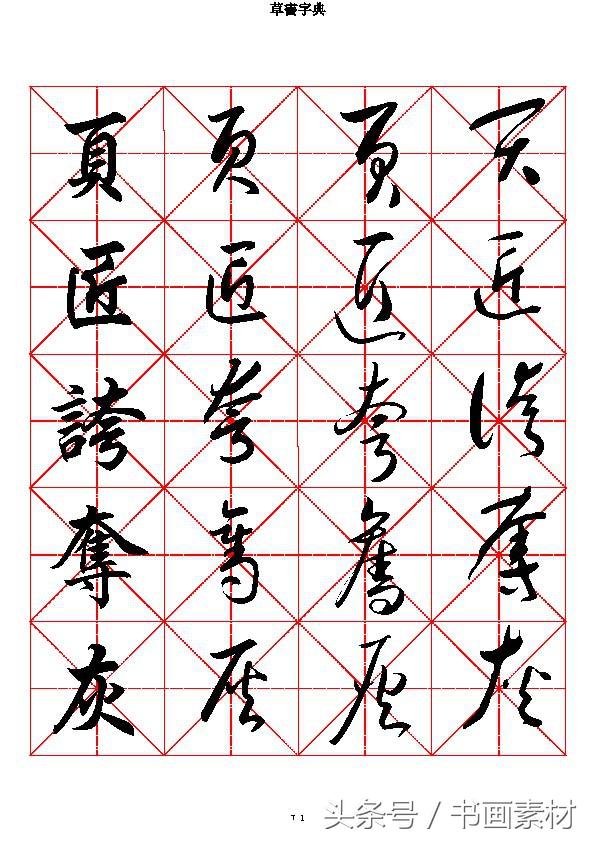 草書字典
頁 頁 頁 頁
匠 匠 匠 匠
誇 夸 夸 誇
奪 奪
灰 灰 灰 灰
头条号 / 书画素材